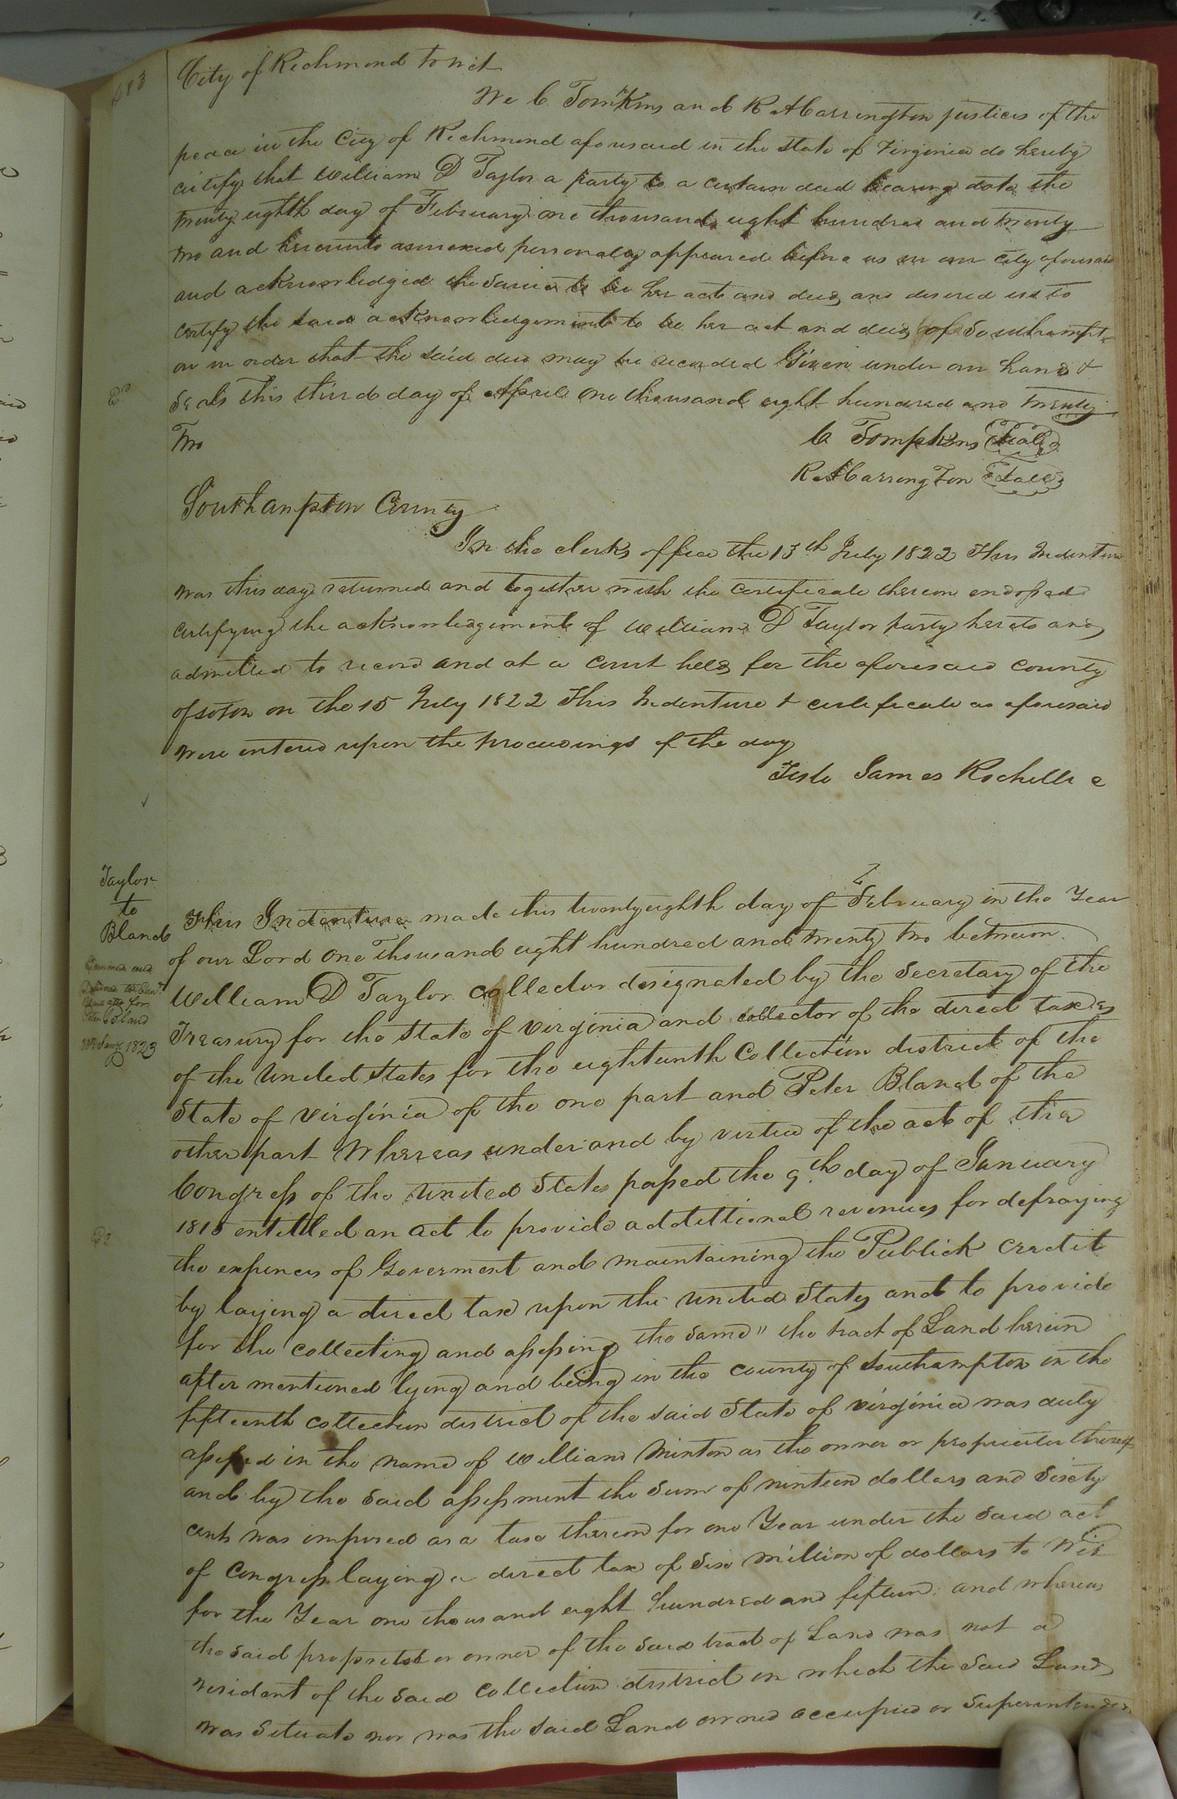 City of Richmond to wit
We C Tomkins and R A Carrington justices of the
peace in the City of Richmond aforesaid in the state of Virginia do hereby
certify that William D Taylor a party to a certain deed bearing date the
twenty eighth day of February one thousand eight hundred and twenty
two and hereunto annexed personaly appeared before us in our city aforesaid
and acknowledged the same to be her act and deed and desired us to
certify the said acknowledgement to be her act and deed of Southampt
on in order that the said deed may be recorded Given under our hands &
Seals this third day of April one thousand eight hundred and twenty
Two
C Tompkins Seal
R A Carrington Seal
Southampton County
In the clerks office the 13th July 1822 This Indenture
was this day returned and together with the certificate thereon endorsed
certifying the acknowledgement of William D Taylor party hereto and
admitted to record and at a court held for the aforesaid county
of soton on the 15 July 1822 This Indenture & certificate as aforesaid
were entered upon the proceedings of the day
Teste James Rochelle c
Taylor
to
Bland
Examined and
Peter Bland
1823
This Indenture made this twentyeighth day of February in the Year
of our Lord one Thousand eight hundred and twenty two between
William D Taylor collector designated by the Secretary of the
Treasury for the State of Virginia and collector of the direct taxes
of the United States for the eighteenth Collection district of the
State of Virginia of the one part and Peter Bland of the
other part Whereas under and by virtue of the act of the
Congress of the United States passed the 9th day of January
1815 entitled an act to provide additional revenues for defraying
the expences of Goverment and maintaining the Publick credit
by laying a direct tax upon the United States and to provide
for the collecting and assessing the same" the tract of Land herein
after mentioned lying and being in the county of Southampton in the
fifteenth collection district of the said State of virginia was duly
assessed in the name of William Minton as the owner or proprietor thereof
and by the said assessment the Sum of nineteen dollars and Sixty
cents was imposed as a tax thereon for one Year under the said act
of Congress laying a direct tax of Six million of dollars to Wit
for the Year one thousand eight hundred and fifteen: and whereas
the said proprietor or owner of the said tract of Land was not a
resident of the said collection district in which the said Land
was Situate nor was the said Land owned occupied or Superintended